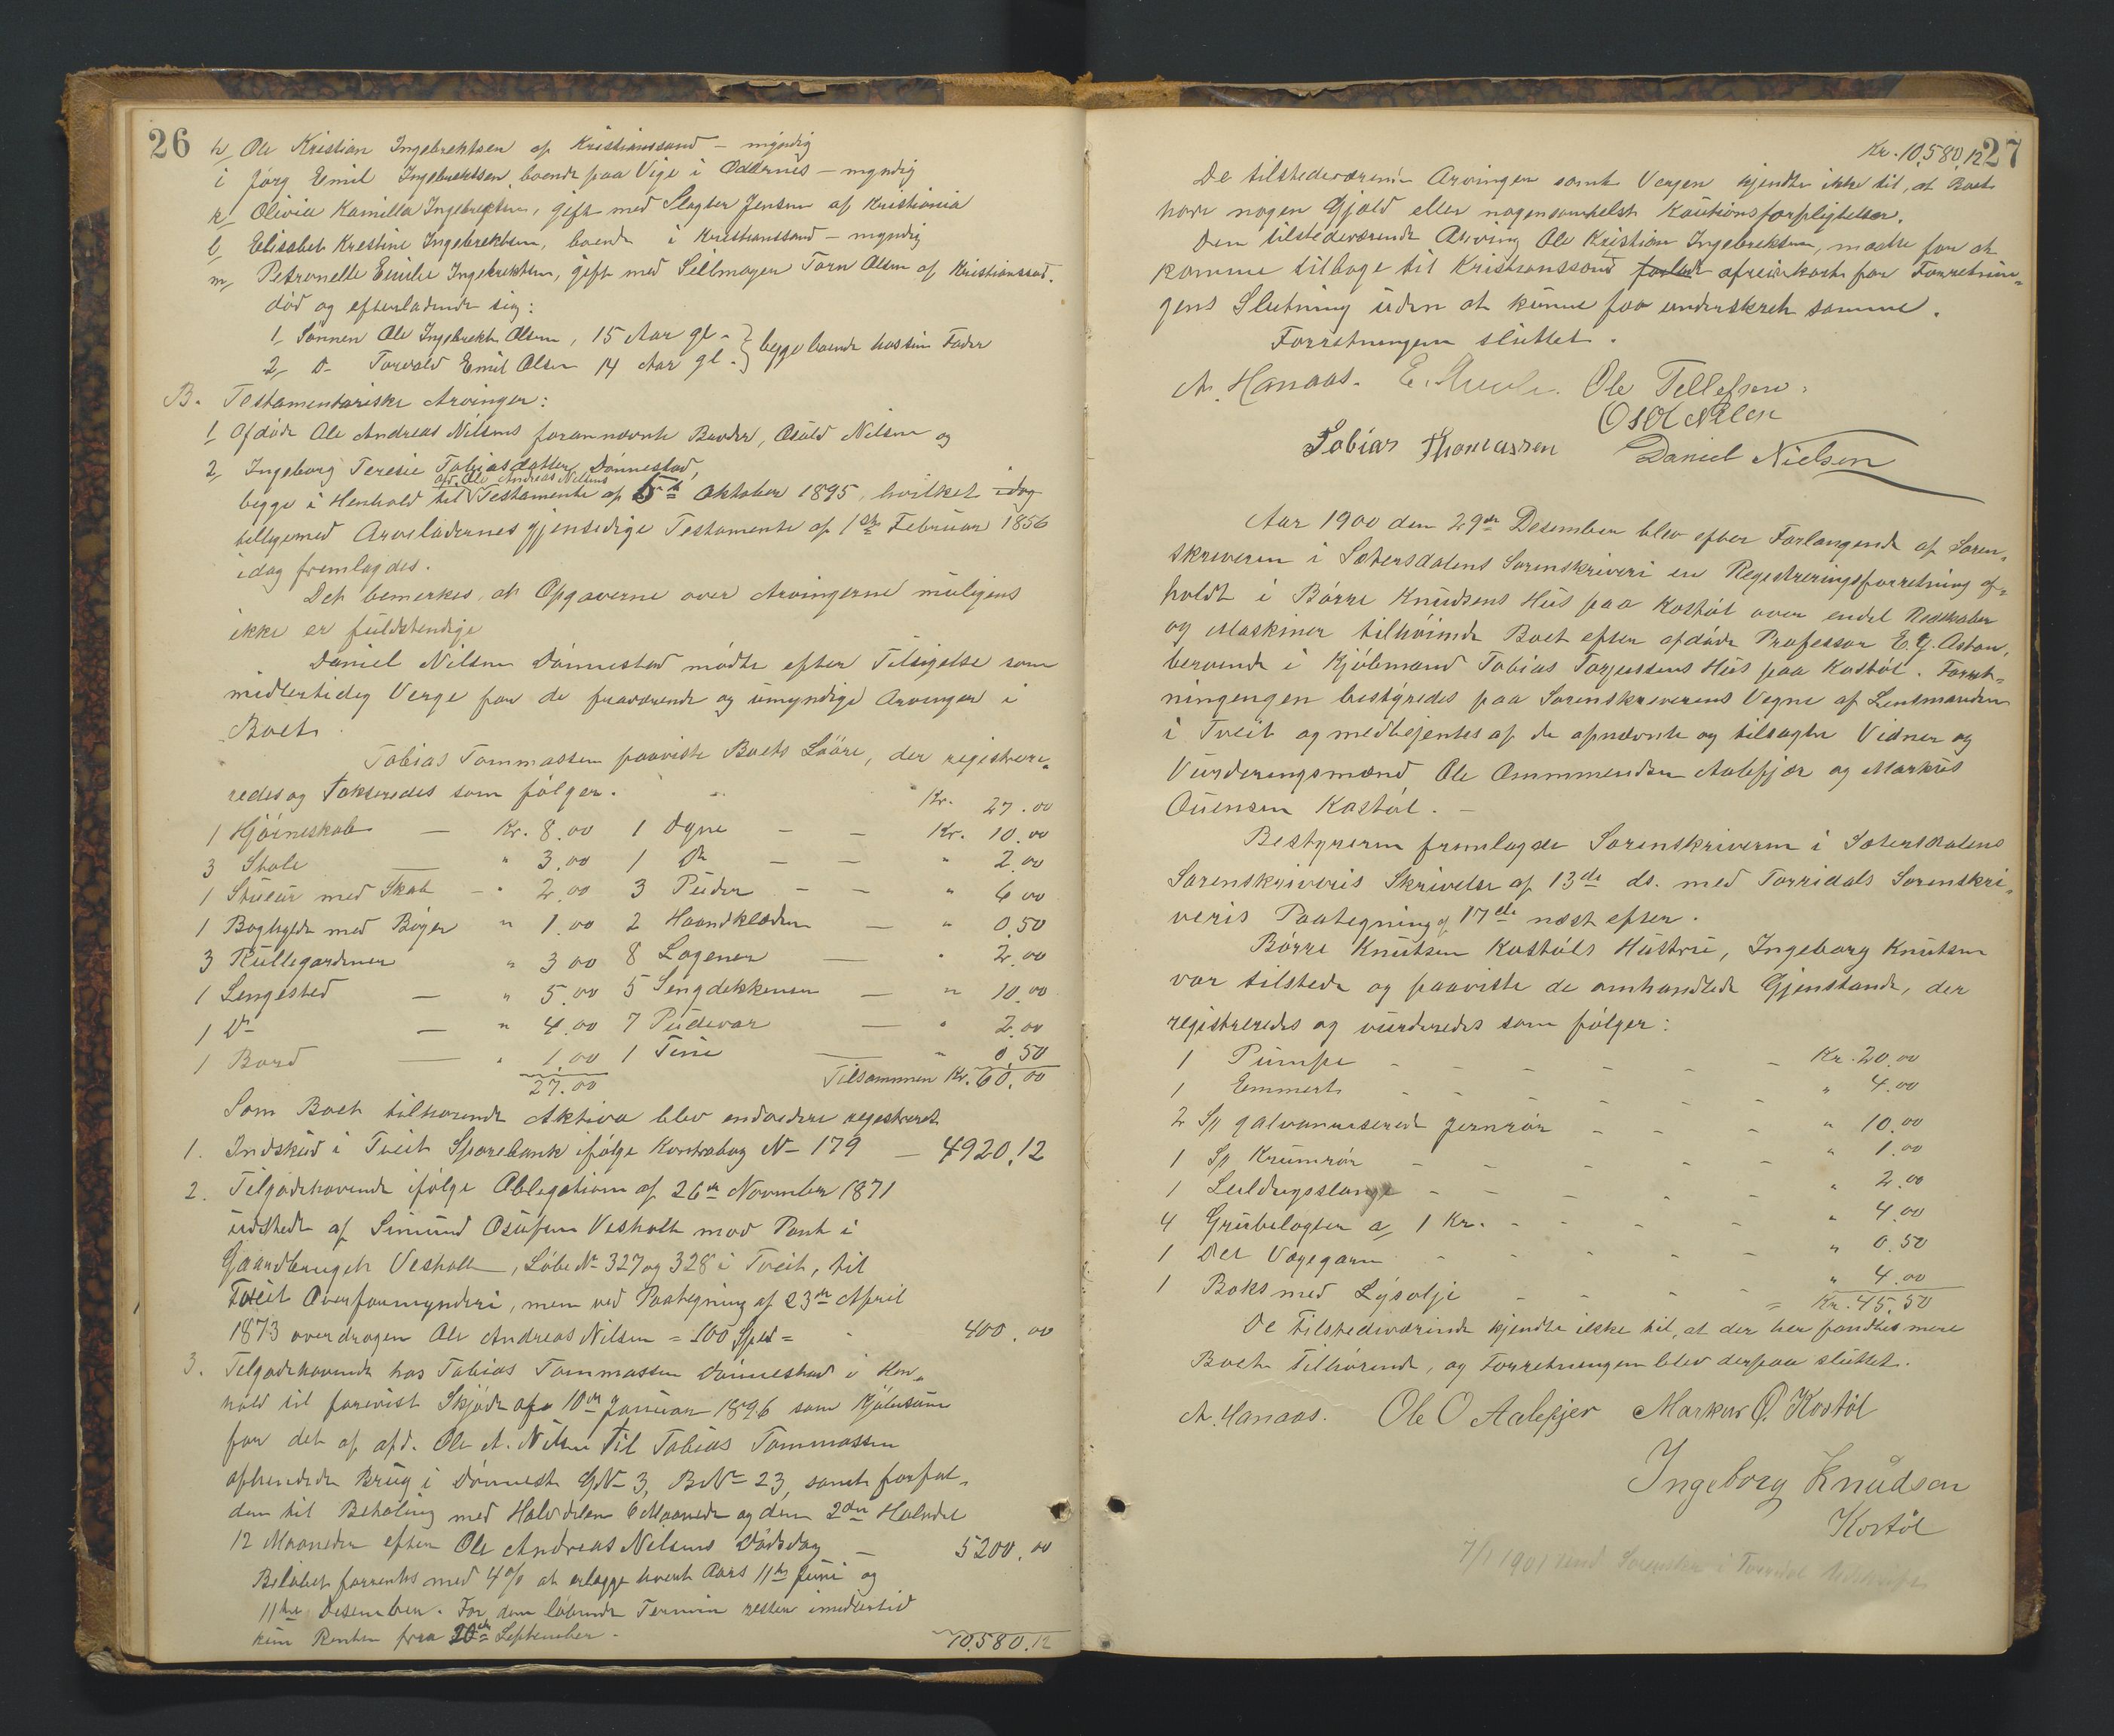 26
h, Ole Kristian Ingebrektsen af Kristianssand – myndig
i Jørg Emil Ingebrektsen, boende paa Vige i Oddernes – myndig
k, Olivia Kamilla Ingebrektsen, gift med Slagter Jensen af Kristiania
l, Elisabet Kristine Ingebrektsen, boende i Kristianssand – myndig
m, Petronelle Emilie Ingebrektsen, gift med Seilmager Tørn Olsen af Kristianssad.
død og efterladende sig:
1, Sønnen Ole Ingebrekt Olsen, 15 Aar gl. } begge boende hos sin Fader
2, D– Torvald Emil Olsen 14 Aar gl. }
B. Testamentariske Arvinger:
1, Afdøde Ole Andreas Nilsens forannævnte Broder, Osuld Nilsen og
2, Ingeborg Teresie Tobiasdatter Dønnestad,
afd. Ole Andreas Nilsens
begge i Henhold til Testamente af 5te Oktober 1895, hvilket idag
tilligemed Arveladernes gjensidige Testamente af 1ste Februar 1856
idag fremlagdes.
Det bemerkes, at Opgaverne over Arvingerne muligens
ikke er fuldstendige
Daniel Nilsen Dønnestad mødte efter Tilsigelse som
midlertidig Verge for de fraværende og umyndige Arvinger i
Boet.
Tobias Tommassen paaviste Boets Løøre, der registrere-
redes og takseredes som følger.
Kr. 27.00
1 Hjørneskab — Kr. 8.00 1 Dyne – – Kr. 10.00
3 Stole — " 3.00 1 Do – – " 2.00
1 Stueur med Skab – " 2.00 3 Puder – – " 6.00
1 Boghylde med Bøger " 1.00 2 Haandklæder — " 0.50
3 Rullegardiner " 3.00 8 Lagener — " 2.00
1 Sengested — " 5.00 5 Sengdekkener — " 10.00
1 Do — " 4.00 7 Pudevar — " 2.00
1 Bord — " 1.00 1 Tine — " 0.50
27.00 Tilsammen Kr. 60.00
Som Boet tilhørende Aktiva blev endvidere registreret
1. Indskud i Tveit Sparebank ifølge Kontrabog No 179 – 4920.12
2. Tilgodehavende ifølge Obligation af 26de November 1871
udstedt af Simund Osufsen Vesholt mod Pant i
Gaardbruget Vesholt, Løbe No 327 og 328 i Tveit, til
Tveit Overformynderi, men ved Paategning af 23de April
1873 overdragen Ole Andreas Nilsen = 100 Spd = 400.00
3. Tilgodehavende hos Tobias Tommassen Dønnestad i Hen-
hold til forevist Skjøde af 10de Januar 1896 som Kjøbesum
for det af afd. Ole A. Nilsen til Tobias Tommassen
afhendede Brug i Dønnest. GNo 3, BNo 23, samt forfal-
den til Betaling med Halvdelen 6 Maaneder og den 2den Halvdel
12 Maaneder efter Ole Andreas Nilsens Dødsdag — 5200.00
Beløbet forrentes med 4% at erlægge hvert Aars 11te Juni og
11te Desember. For den løbende Termin rester imidlertid
kun Renten fra 20de September.
10.580.12
27
Kr. 10,580,12
De tilstedeværende Arvinger samt Vergen kjendte ikke til, at Boet
havde nogen Gjæld eller nogensomhelst Kautionsforpligtelser.
Den tilstedeværende Arving Ole Kristian Ingebrektsen, maatte for at
komme tilbage til Kristianssand forlade afreise kort før Forretnin-
gens Slutning uden at kunne faa underskrevet samme.
Forretningen sluttet.
A. Hanaas. Ole Tellefsen.
Osold Nilsen
Tobias Thomassen Daniel Nielsen
Aar 1900 den 29de Desember blev efter Forlangende af Soren-
skriveren i Sætersdalens Sorenskriveri en Registreringsforretning af-
holdt i Børre Knudsens Hus paa Kostøl over endel Redskaber
og Maskiner tilhørende Boet efter afdøde Professor E. G. Aston,
beroende i Kjøbmand Tobias Torjussens Hus paa Kostøl. Forret-
ningengen bestyredes paa Sorenskriverens Vegne af Lensmanden
i Tveit og medbetjentes af de opnævnte og tilsagte Vidner og
Vurderingsmænd Ole Ommundsen Aalefjær og Markus
Ouensen Kostøl. –
Bestyreren fremlagde Sorenskriveren i Sætersdalens
Sorenskriveris Skrivelse af 13de ds. med Torridals Sorenskri-
veris Paategning af 17de næst efter.
Børre Knutsen Kostøls Hustru, Ingeborg Knutsen
var tilstede og paaviste de omhandlede Gjenstande, der
registreredes og vurderedes som følger:
1 Pumpe – – – – – Kr. 20.00
1 Emmert – – – – – " 4.00
2 Sp galvaniserede Jernrør – – – " 10.00
1 Sp Krumrør – – – – " 1.00
1 Ledningsslange – – – – " 2.00
4 Grubelagter a, 1 Kr. – – – – " 4.00
1 Del Vægegarn – – – – " 0.50
1 Boks med Lysolje – – – – " 4.00
= Kr. 45.50
De tilstedeværende kjendte ikke til, at der her fandtes mere
Boet tilhørende, og Forretningen blev derpaa sluttet.
A. Hanaas. Ole O Aalefjer Markus O. Kostøl
Ingeborg Knudsen
Kostøl
7/1 1901 Sorenskr i Torridal